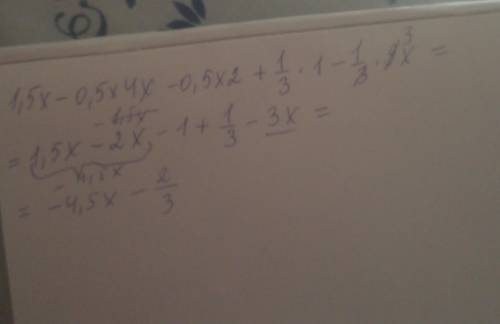 1,5x - 0,5×4x - 0,5×2 + 1/3 · 1 - 1/3 · 9x 3 =
= 1,5x - 2x - 1 + 1/3 - 3x =
= -4,5x - 2/3